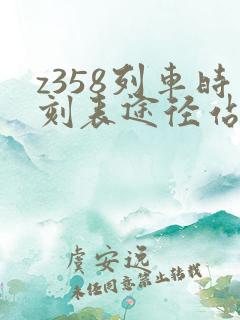 z358列車时
刻表途径站
虞安远
未经同意禁止转载